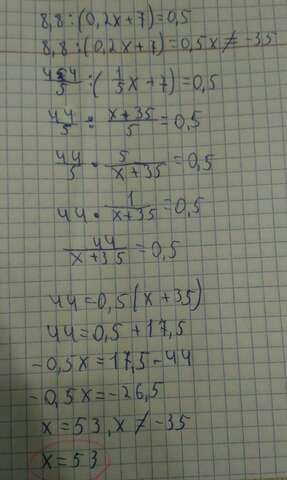 8,8:(0,2x+7)=0,5
8,8:(0,2x+7)=0,5x≠-35
44/5:(1/5x+7)=0,5
44/5:x+35/5=0,5
44/5·5/x+35=0,5
44·1/x+35=0,5
44/x+35=0,5
44=0,5(x+35)
44=0,5+17,5
-0,5x=17,5-44
-0,5x=-26,5
x=53,x≠-35
x=53